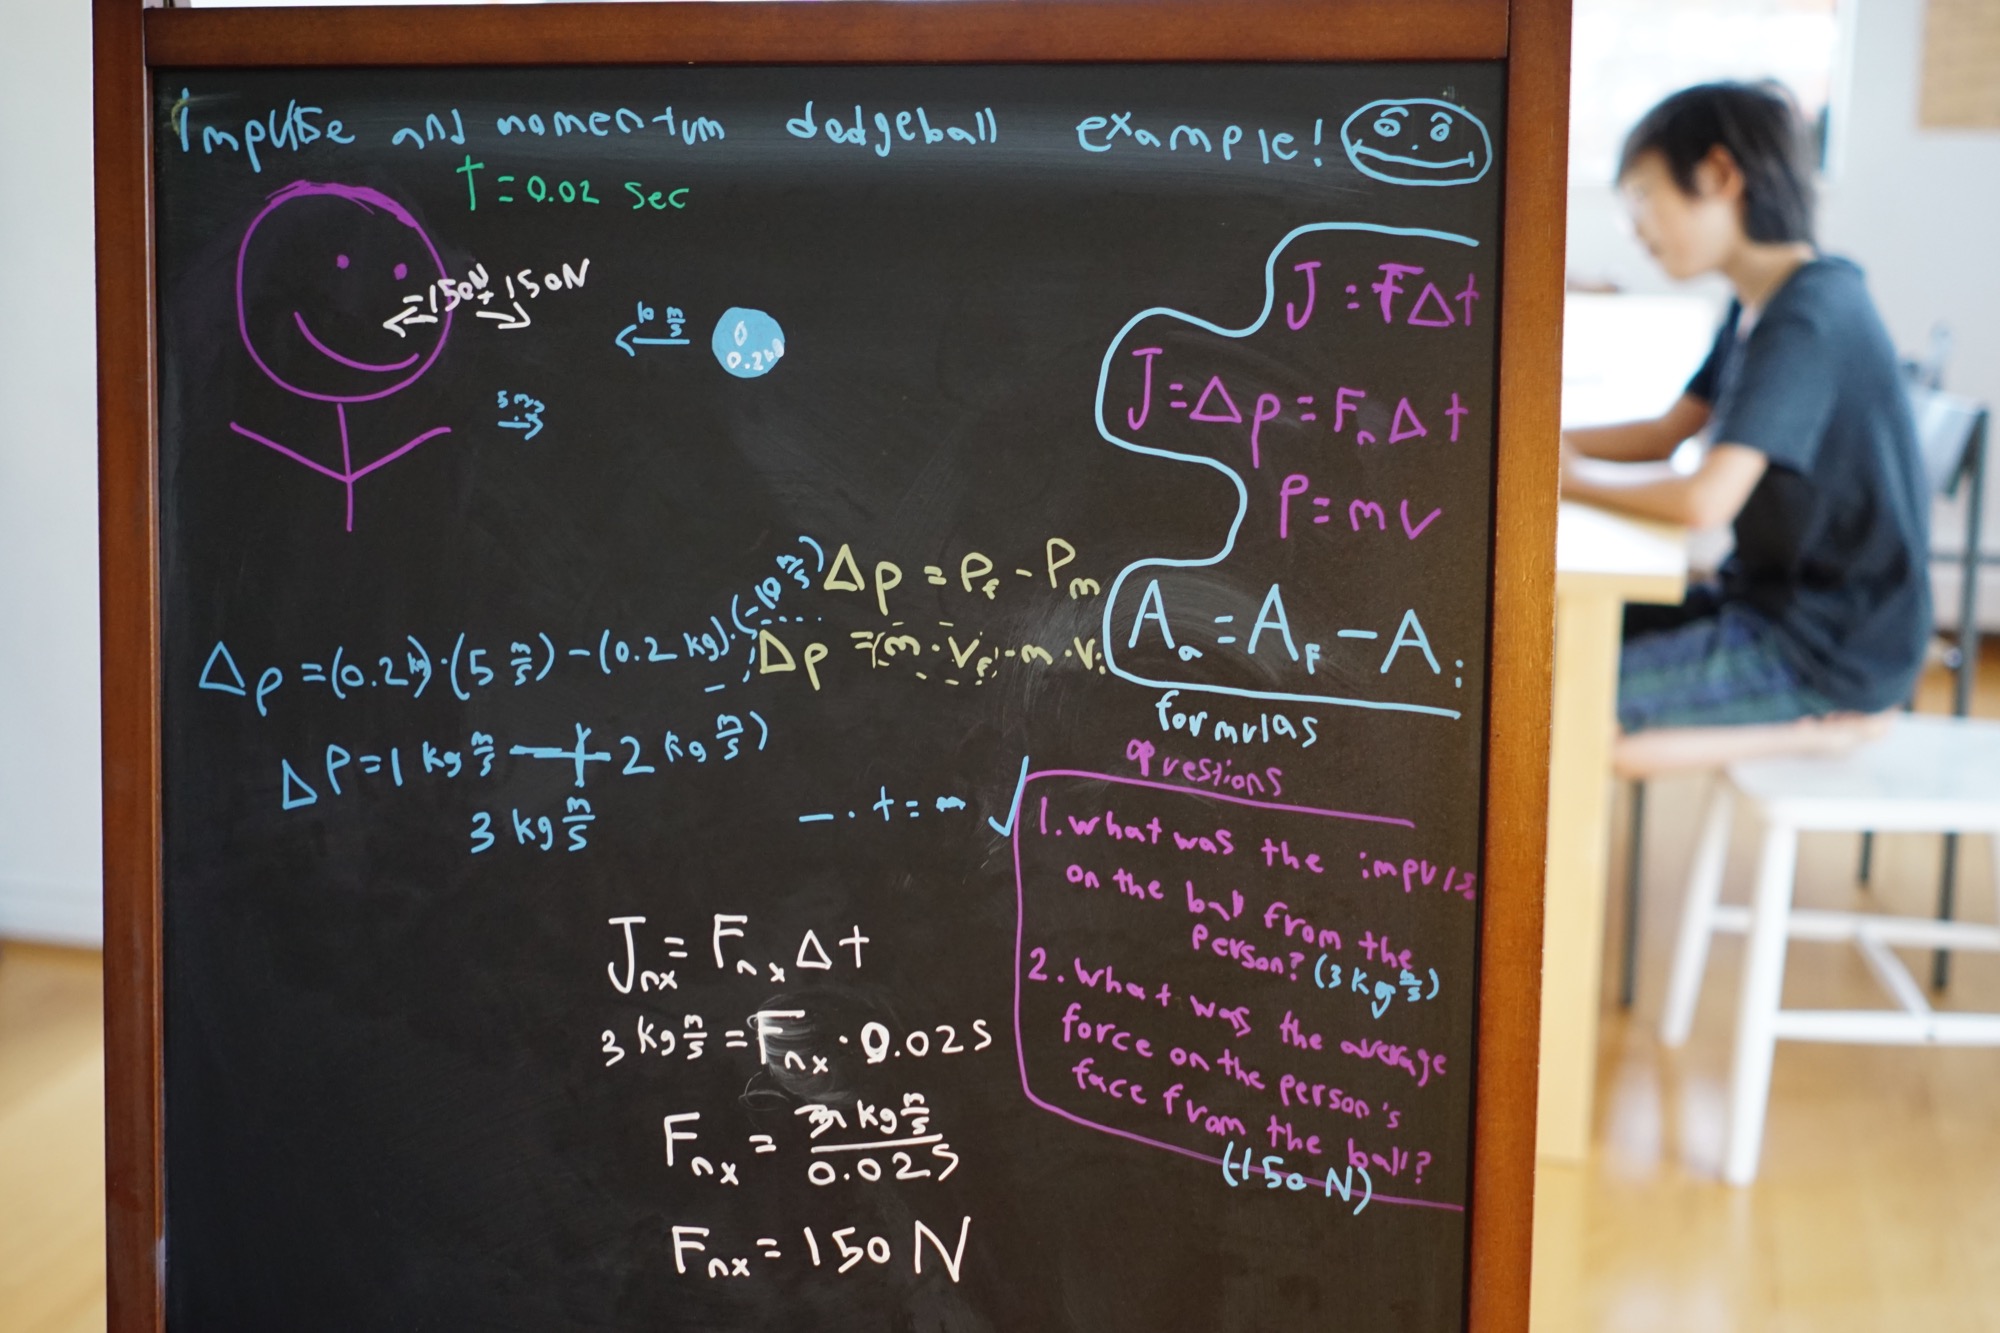 Impulse and momentum dodgeball example!
T = 0.02 sec
-150N +150N
10 m/s
0.2
5 m/s
J = F Δt
J = Δp = Fₙ Δt
P = m v
Aₐ = A_F - A_i
formulas
Δp = P_f - P_m
Δp = (m · v_f) - m · v_i
Δp = (0.2 kg) · (5 m/s) - (0.2 kg) · (-10 m/s)
ΔP = 1 kg m/s + 2 kg m/s)
3 kg m/s
- · + = -
questions
1. What was the impulse
on the ball from the
person? (3 kg m/s)
2. What was the average
force on the person's
face from the ball?
(-150 N)
J_nx = F_nx Δt
3 kg m/s = F_nx · 0.02 s
F_nx = 3 kg m/s / 0.02 s
F_nx = 150 N